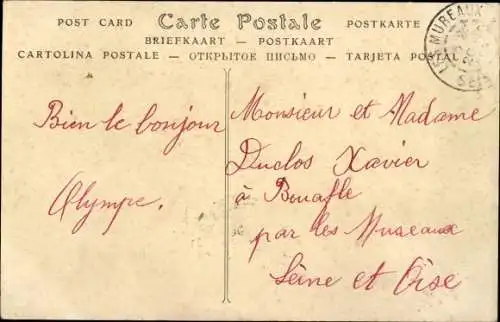 POST CARD Carte Postale POSTKARTE
BRIEFKAART — POSTKAART
CARTOLINA POSTALE — ОТКРЫТОЕ ПИСЬМО — TARJETA POSTAL
LES MUREAUX
Bien le bonjour
Olympe.
Monsieur et Madame
Duclos Xavier
à Bouafle
par les Mureaux
Seine et Oise